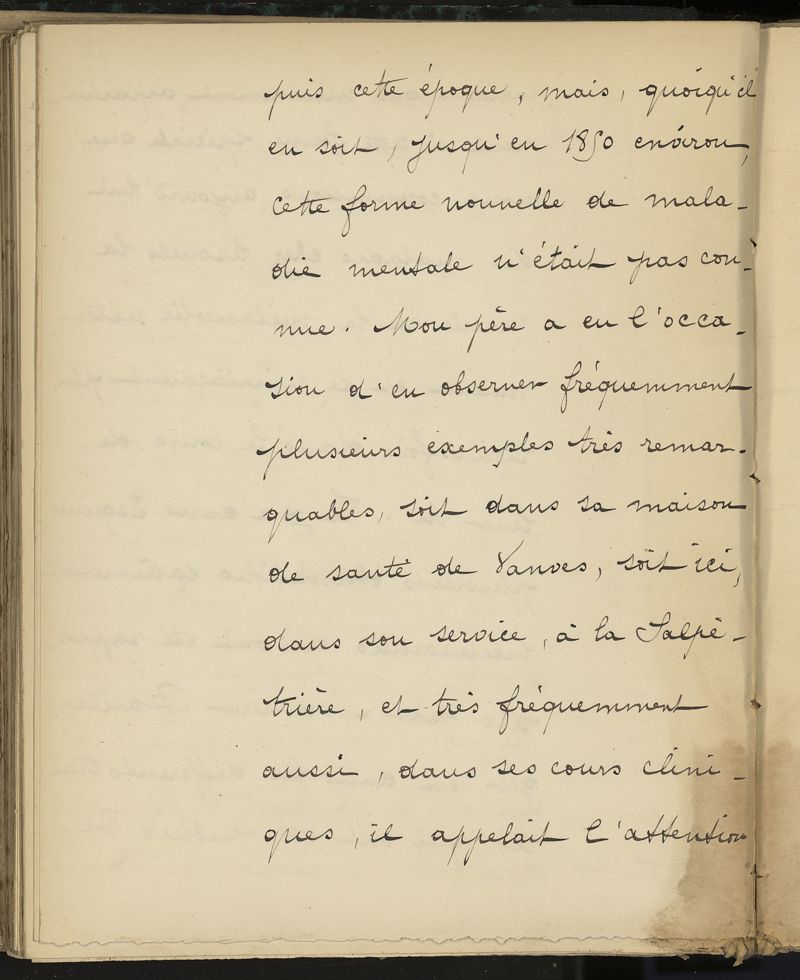 puis cette époque, mais, quoiqu'il
en soit, jusqu'en 1850 environ,
cette forme nouvelle de mala-
die mentale n'était pas con-
nue. Mon père a eu l'occa-
sion d'en observer fréquemment
plusieurs exemples très remar-
quables, soit dans sa maison
de santé de Vanves, soit ici,
dans son service, à la Salpê-
trière, et très fréquemment
aussi, dans ses cours clini-
ques, il appelait l'attention